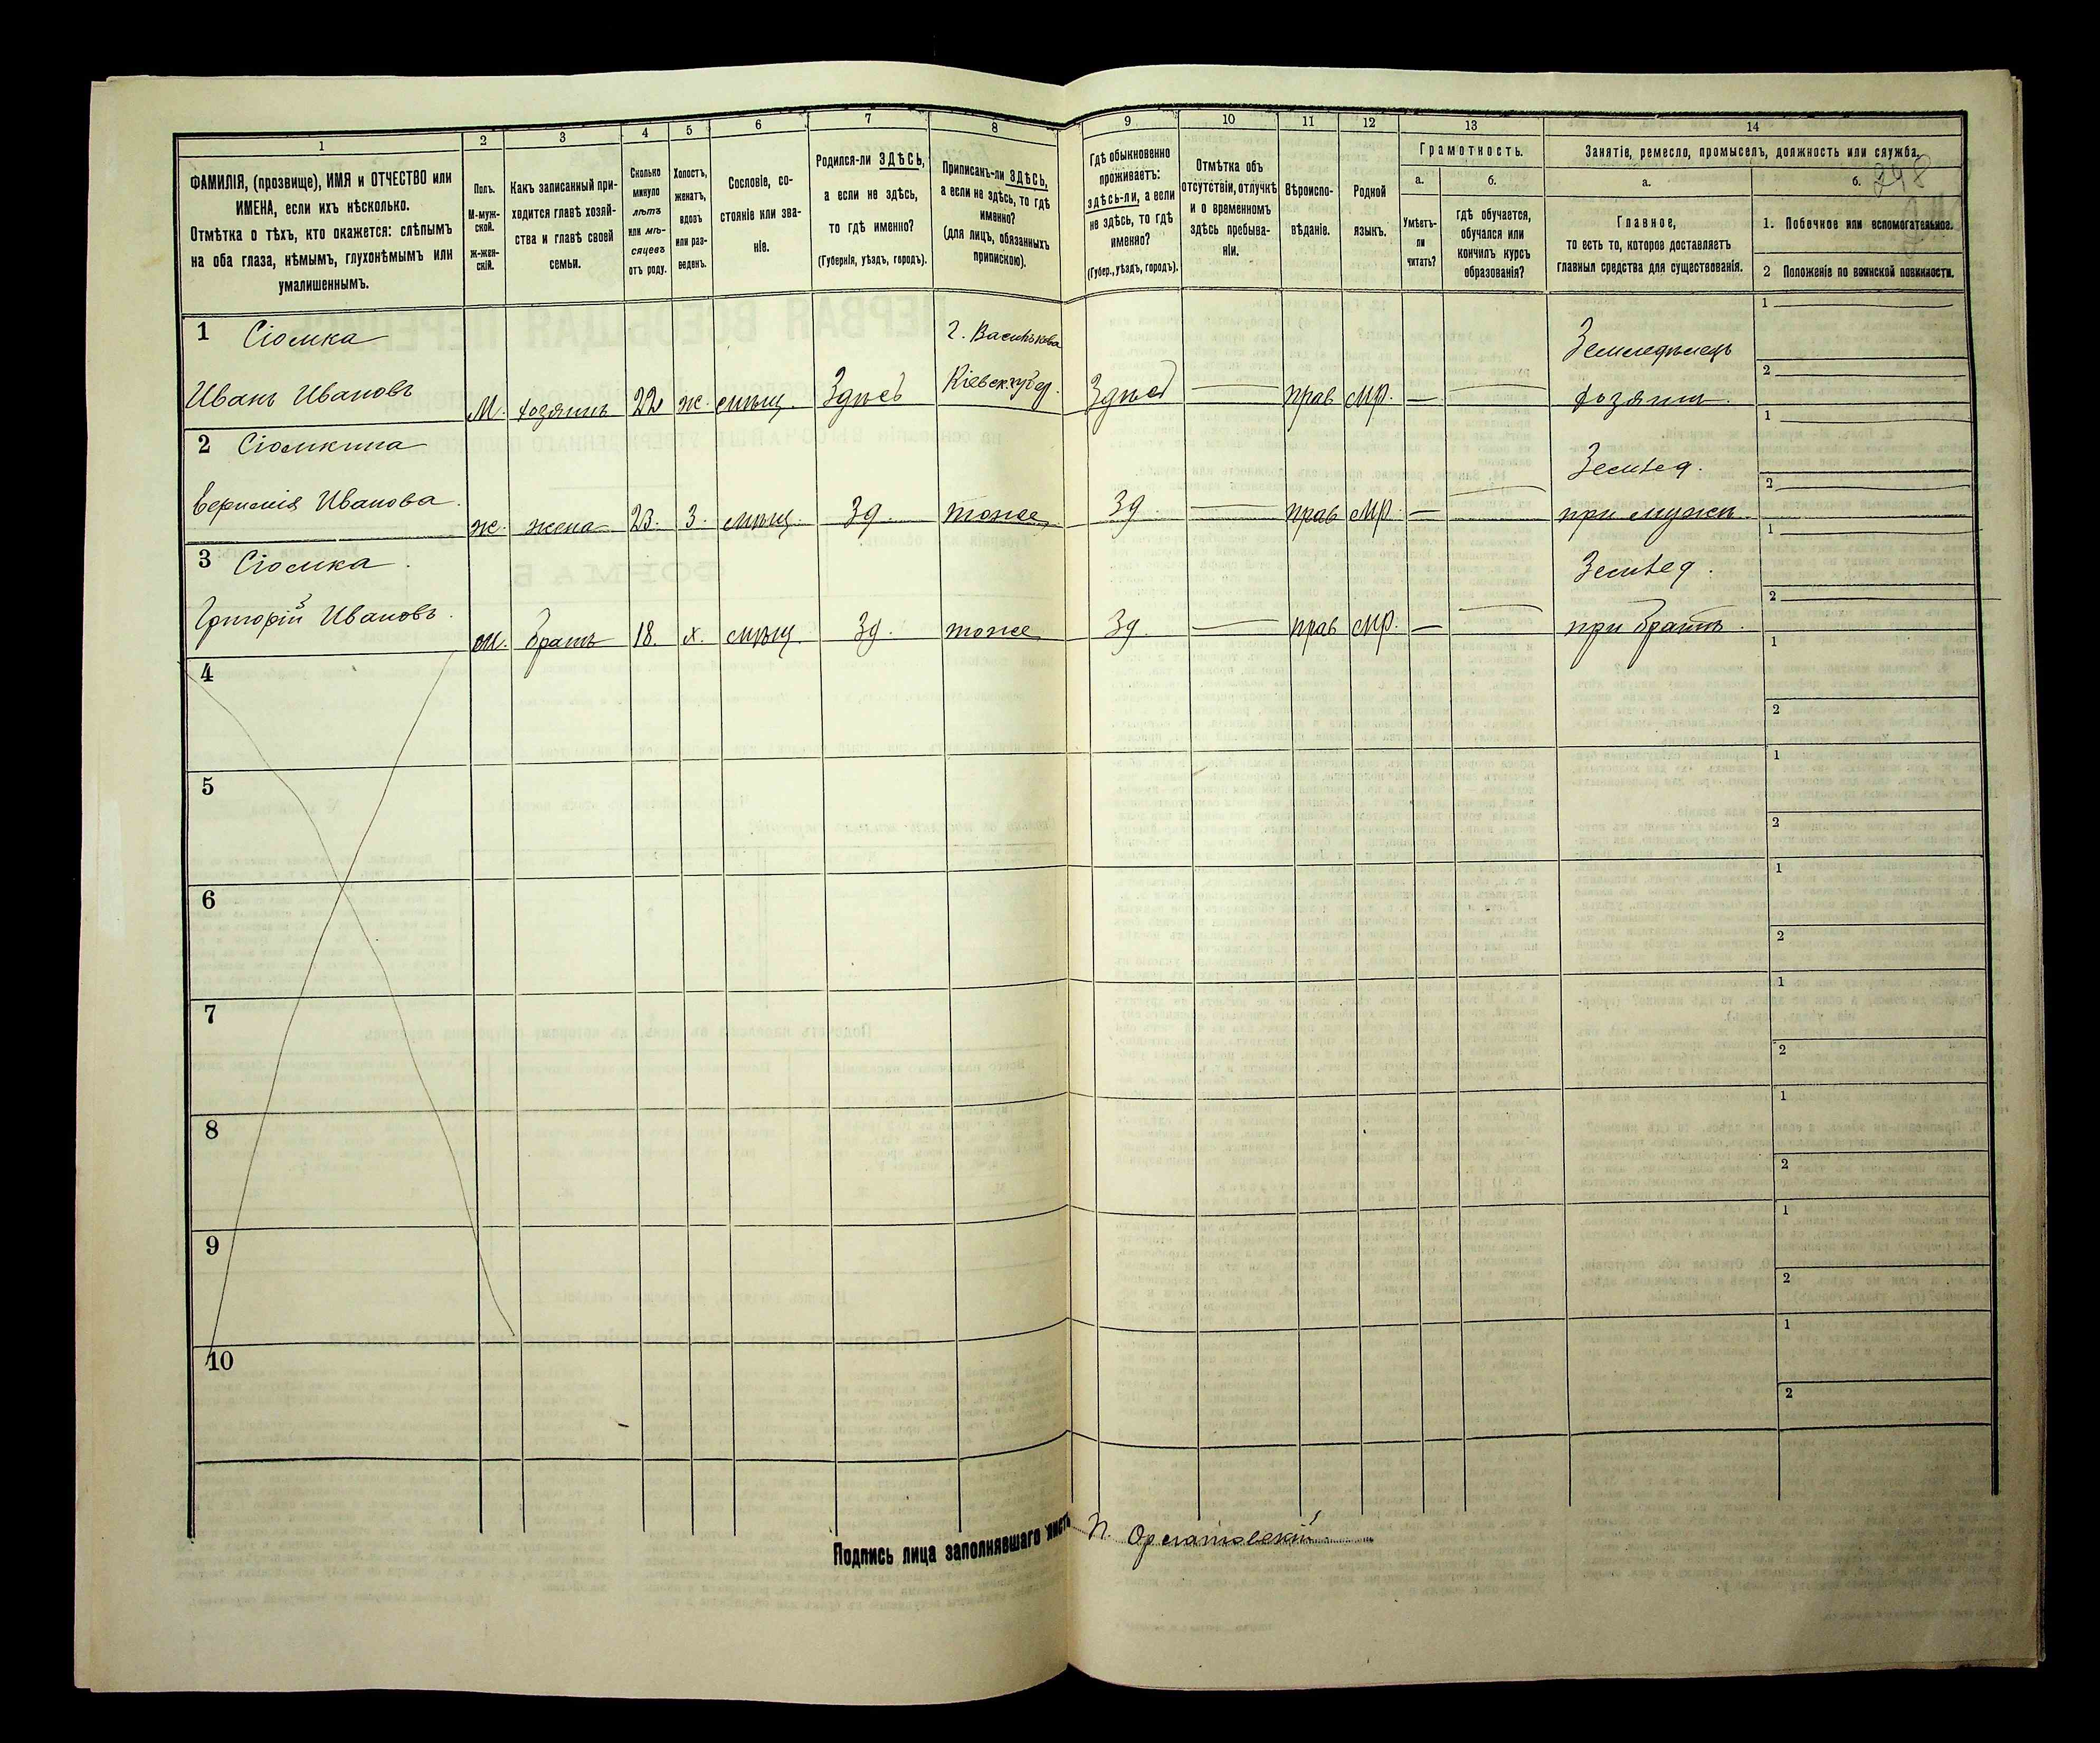 1 2 3 4 5 6 7 8 9 10 11 12 13 14
ФАМИЛІЯ, (прозвище), ИМЯ и ОТЧЕСТВО или
ИМЕНА, если ихъ нѣсколько.
Отмѣтка о тѣхъ, кто окажется: слѣпымъ
на оба глаза, нѣмымъ, глухонѣмымъ или
умалишеннымъ.
Полъ.
М-муж-
ской.
ж-жен-
скій.
Какъ записанный при-
ходится главѣ хозяй-
ства и главѣ своей
семьи.
Сколько
минуло
лѣтъ
или мѣ-
сяцевъ
отъ роду.
Холостъ,
женатъ,
вдовъ
или раз-
веденъ.
Сословіе, со-
стояніе или зва-
ніе.
Родился-ли ЗДѢСЬ,
а если не здѣсь,
то гдѣ именно?
(Губернія, уѣздъ, городъ).
Приписанъ-ли ЗДѢСЬ,
а если не здѣсь, то гдѣ
именно?
(для лицъ, обязанныхъ
припискою).
Гдѣ обыкновенно
проживаетъ:
здѣсь-ли, а если
не здѣсь, то гдѣ
именно?
(Губер., уѣздъ, городъ).
Отмѣтка объ
отсутствіи, отлучкѣ
и о временномъ
здѣсь пребыва-
ніи.
Вѣроиспо-
вѣданіе.
Родной
языкъ.
Грамотность.
а.
Умѣетъ-
ли
читать?
б.
гдѣ обучается,
обучался или
кончилъ курсъ
образованія?
Занятіе, ремесло, промыселъ, должность или служба.
а.
Главное,
то есть то, которое доставляетъ
главныя средства для существованія.
б.
298
1. Побочное или вспомогательное.
2 Положеніе по воинской повинности.
1 Сіомка г. Василькова Земледѣлецъ 1
Иванъ Ивановъ М. хозяинъ 22 ж. мѣщ. Здѣсь Кіевск. губер. Здѣсь прав мр. — хозяинъ 2
2 Сіомкина Землед. 1
Иванова ж. жена 23. з. мѣщ. Зд. тоже Зд прав мр. — при мужѣ 2
3 Сіомка Землед. 1
Григорій Ивановъ м. братъ 18. х. мѣщ. Зд. тоже Зд. прав мр. — при братѣ 2
4 1
2
5 1
2
6 1
2
7 1
2
8 1
2
9 1
2
10 1
2
Подпись лица заполнявшаго листъ